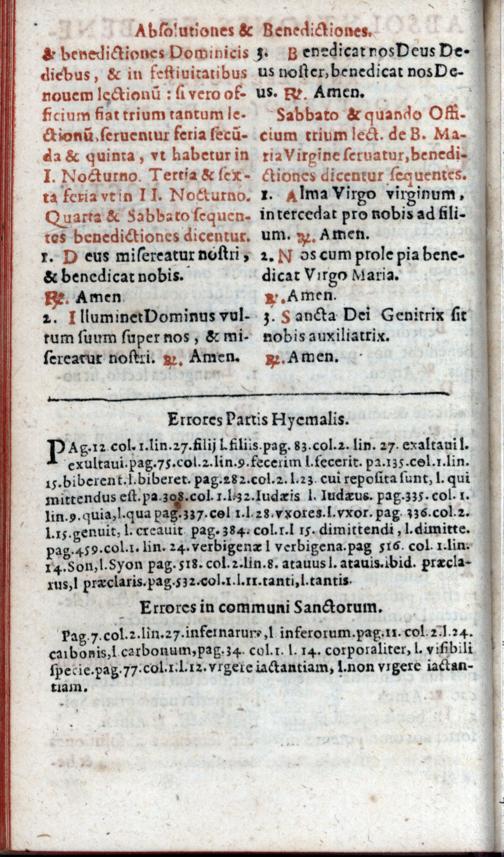 Absolutiones & Benedictiones.
& benedictiones Dominicis
diebus, & in festiuitatibus
nouem lectionũ : si vero of-
ficium fiat trium tantum le-
ctionũ, seruentur feria secũ-
da & quinta, vt habetur in
I. Nocturno. Tertia & sex-
ta feria vt in II. Nocturno.
Quarta & Sabbato sequen-
tes benedictiones dicentur.
1. Deus misereatur nostri,
& benedicat nobis.
℟. Amen
2. Illuminet Dominus vul-
tum suum super nos, & mi-
sereatur nostri. ℟. Amen.
3. Benedicat nos Deus De-
us noster, benedicat nos De-
us. ℟. Amen.
Sabbato & quando Offi-
cium trium lect. de B. Ma-
ria Virgine seruatur, benedi-
ctiones dicentur sequentes.
1. Alma Virgo virginum,
intercedat pro nobis ad fili-
um. ℟. Amen.
2. Nos cum prole pia bene-
dicat Virgo Maria.
℟. Amen.
3. Sancta Dei Genitrix sit
nobis auxiliatrix.
℟. Amen.
Errores Partis Hyemalis.
PAg.12 col.1.lin.27.filij l.filiis.pag. 83.col.2. lin. 27. exaltaui l.
exultaui.pag.75.col.2.lin.9.fecerim l.fecerit. pa.135.col.1.lin.
15.biberent.l.biberet. pag.282.col.2.l.23. cui reposita sunt, l. qui
mittendus est.pa.308.col.1.l.32.Iudæis l. Iudæus. pag.335.col. 1.
lin.9.quia,l.qua pag.337.col 1.l 28.vxores.l.vxor. pag. 336.col.2.
l.15.genuit, l. creauit pag. 384. col.1.l 15. dimittendi, l.dimitte.
pag.459.col.1. lin. 24. verbigenæ l verbigena.pag 516. col. 1.lin.
14.Son,l.Syon pag.518. col.2.lin.8. atauus l. atauis.ibid. præcla-
rus,l præclaris.pag.532.col.1.l.11.tanti,l.tantis.
Errores in communi Sanctorum.
Pag.7.col.2.lin.27.infernarum,l inferorum.pag.11.col.2.l.24.
carbonis,l carbonum,pag.34. col.1. l. 14. corporaliter, l. visibili
specie.pag.77.col.1.l.12.vrgere iactantiam, l.non vrgere iactan-
tiam.